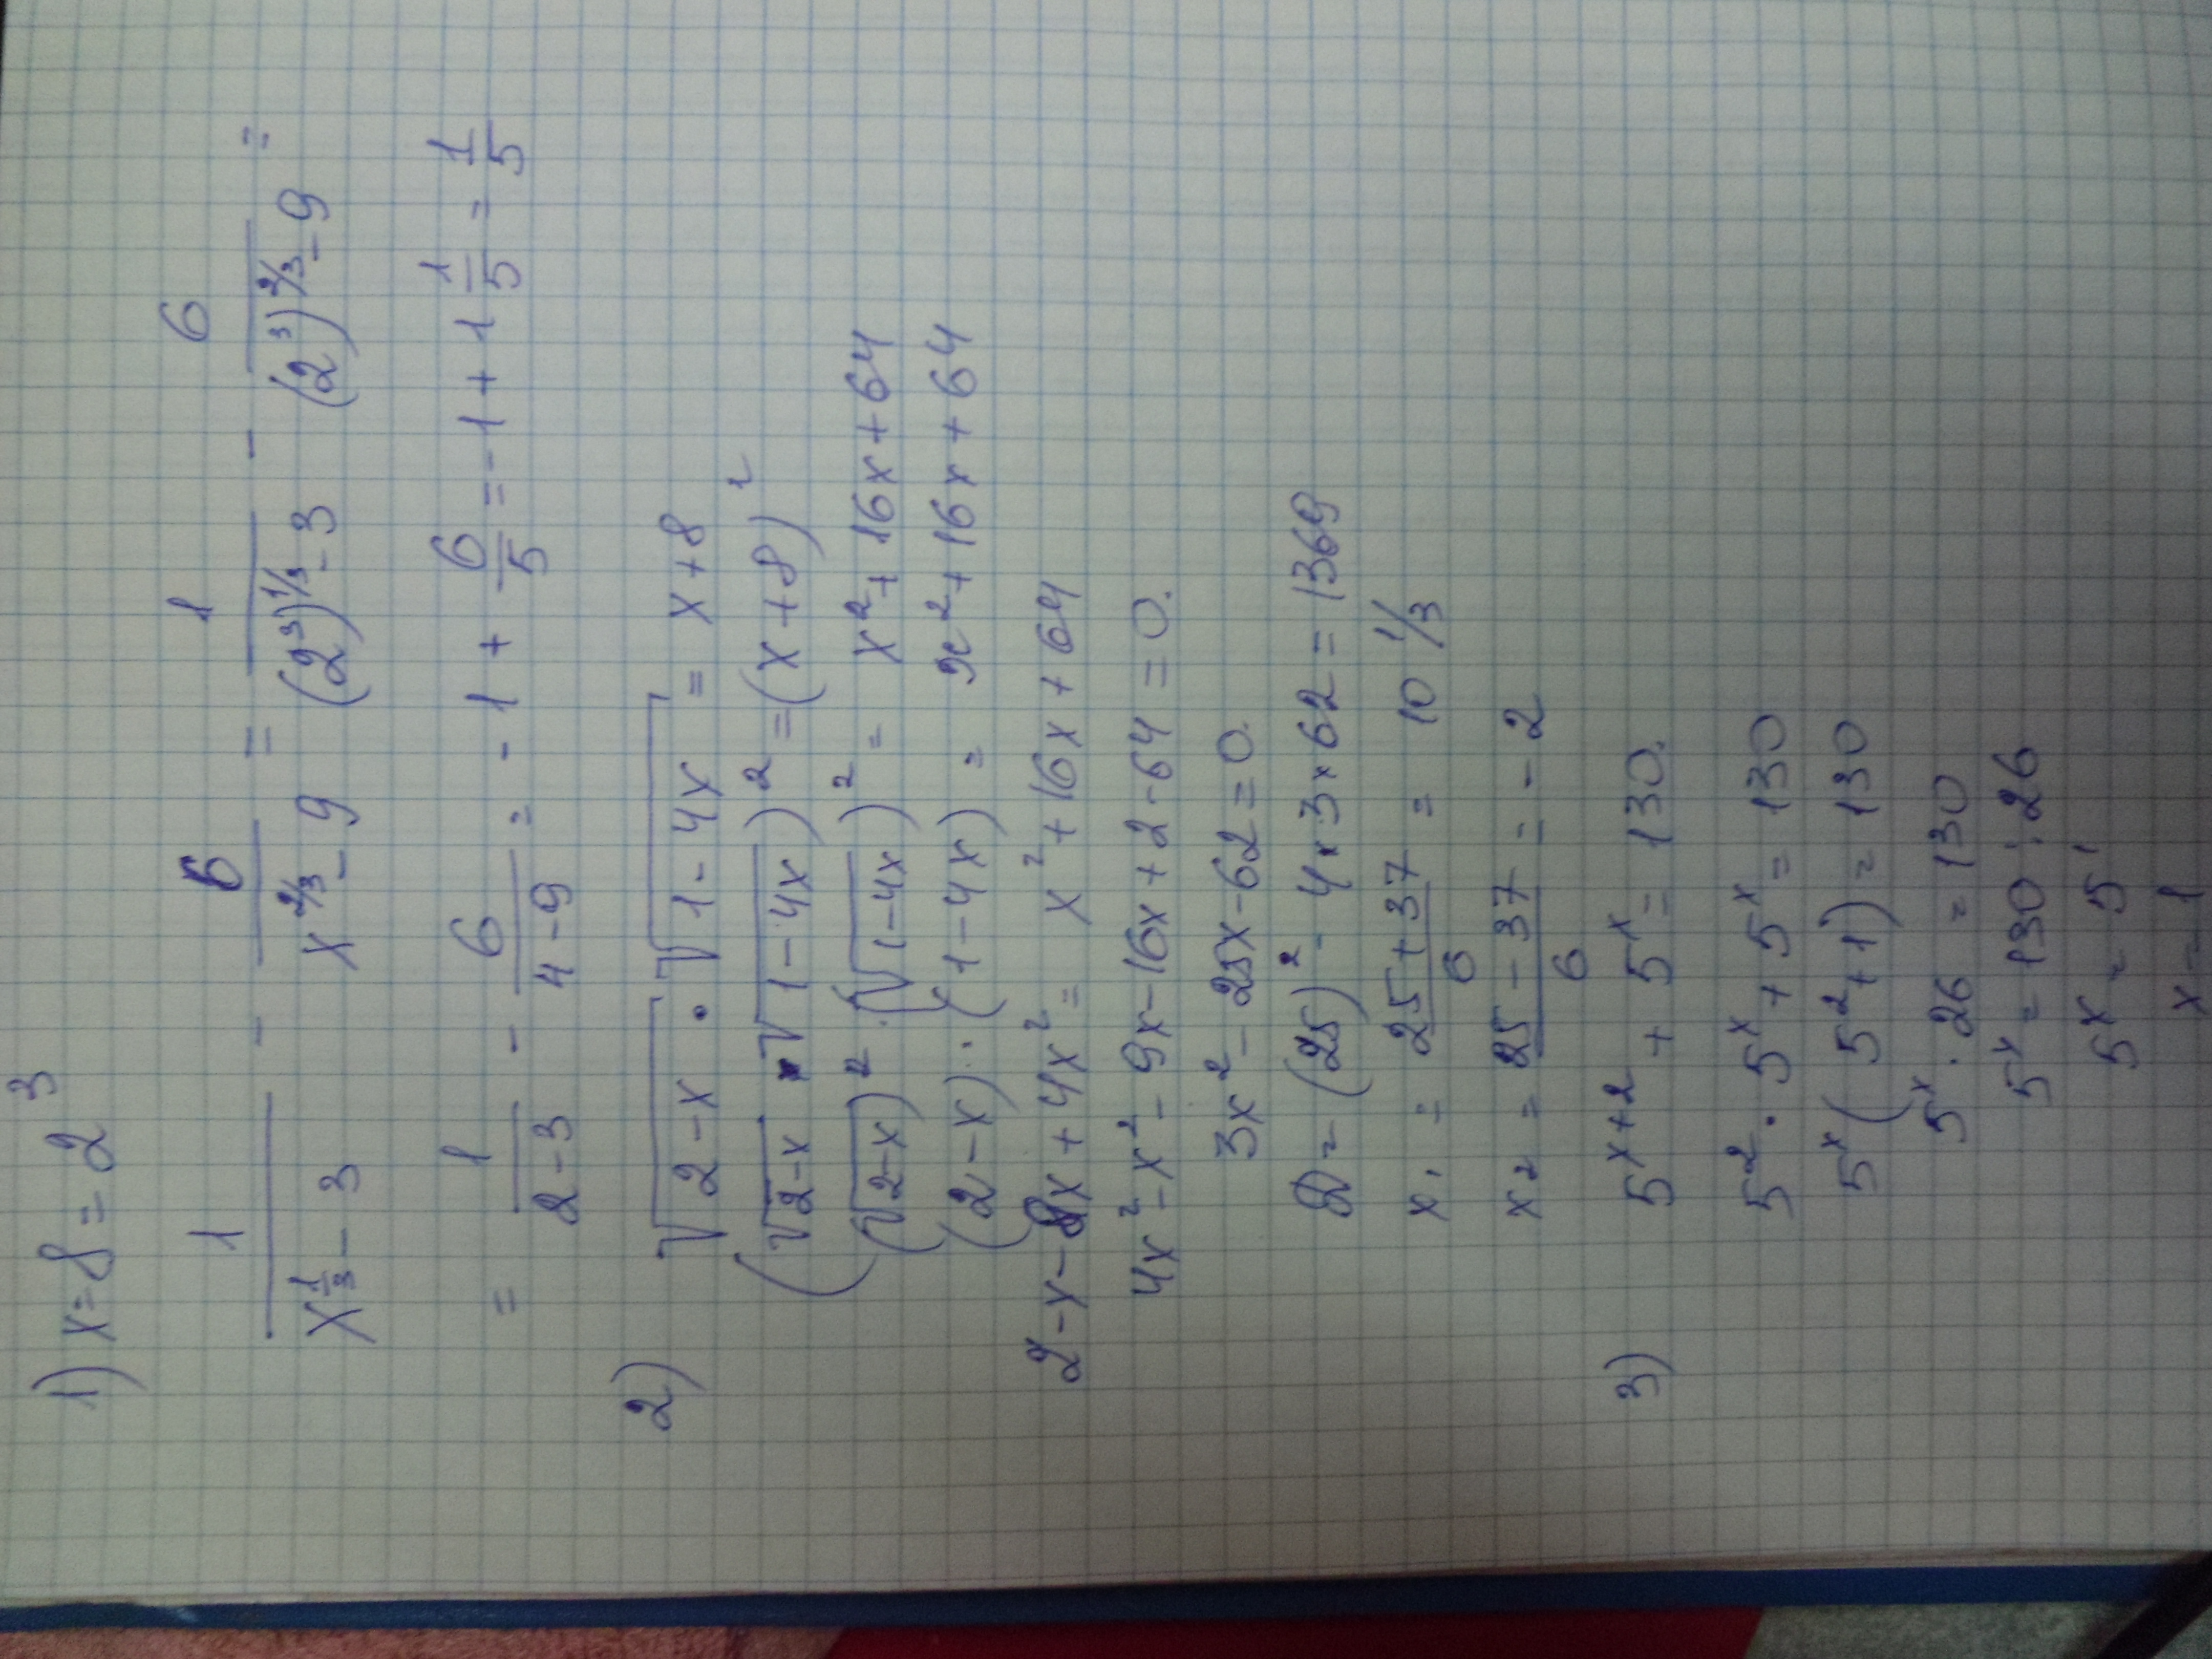 1) x = 8 = 2³
1/(x^(1/3) - 3) - 6/(x^(2/3) - 9) = 1/((2³)^(1/3) - 3) - 6/((2³)^(2/3) - 9) =
= 1/(2-3) - 6/(4-9) = -1 + 6/5 = -1 + 1 1/5 = 1/5
2) √(2-x) · √(1-4x) = x+8
(√(2-x) · √(1-4x))² = (x+8)²
(√(2-x))² · (√(1-4x))² = x² + 16x + 64
(2-x) · (1-4x) = x² + 16x + 64
2-x-8x+4x² = x² + 16x + 64
4x² - x² - 9x - 16x + 2 - 64 = 0.
3x² - 25x - 62 = 0.
D = (25)² - 4x3x62 = 1369
x₁ = (25+37)/6 = 10 1/3
x₂ = (25-37)/6 = -2
3) 5^(x+2) + 5^x = 130.
5² · 5^x + 5^x = 130
5^x (5² + 1) = 130
5^x · 26 = 130
5^x = 130 : 26
5^x = 5¹
x = 1